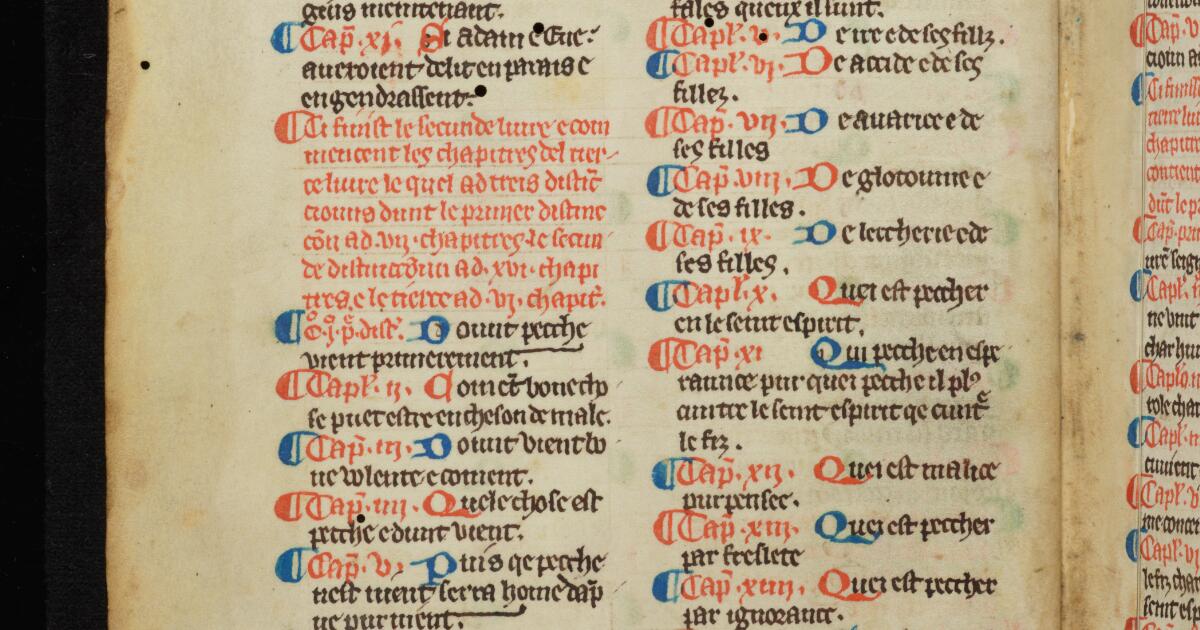 geus meintenant.
Cap̃. xi. Si adam e Eue
aueroient delit en parais e
engendrassent.
Ci finist le secunde liure e com
mencent les chapitres del tier-
ce liure le quel ad treis distĩc
ciouns dunt le primer distinc
cõn ad .vij. chapitres. le secun
de distincciõun ad .xvi. chapi
tres. e le tierce ad .vi. chapit̃.
D ount pecche
vient primerement.
Capl̃. ij. Coment bone cho
se puet estre encheson de male.
Cap̃. iij. Dount vient lo
ne volente e coment.
Cap̃. iiij. Quele chose est
pecche e dunt vient.
Cap̃. v. Puis qe pecche
nest nient serra home dap̃
ne pur nient.
tales queux il sunt.
Capl̃. v. De ire e de ses fillz.
Capl̃. vj. De accide e de ses
fillez.
Cap̃. vij. De auarice e de
ses filles
Cap̃. viij. De glotounie e
de ses filles.
Cap̃. ix. De leccherie e de
ses filles.
Capl̃. x. Quei est peccher
en le seint espirit.
Cap̃. xi Qui pecche en espe
raunce pur quei pecche il plꝰ
cuntre le seint espirit qe cunt̃
le fiz.
Cap̃. xij. Quei est malice
purpensee.
Cap̃. xiij. Quei est peccher
par freslete
Cap̃. xiiij. Quei est peccher
par ignorance.